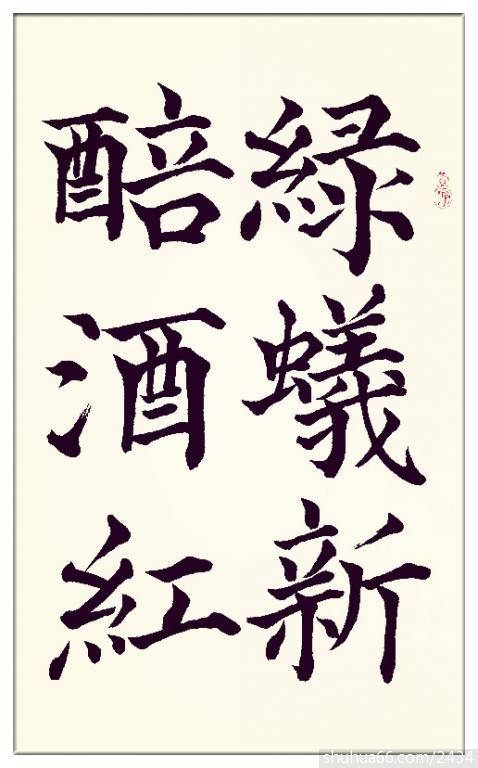 緑蟻新
醅酒紅
shuhua66.com/2434